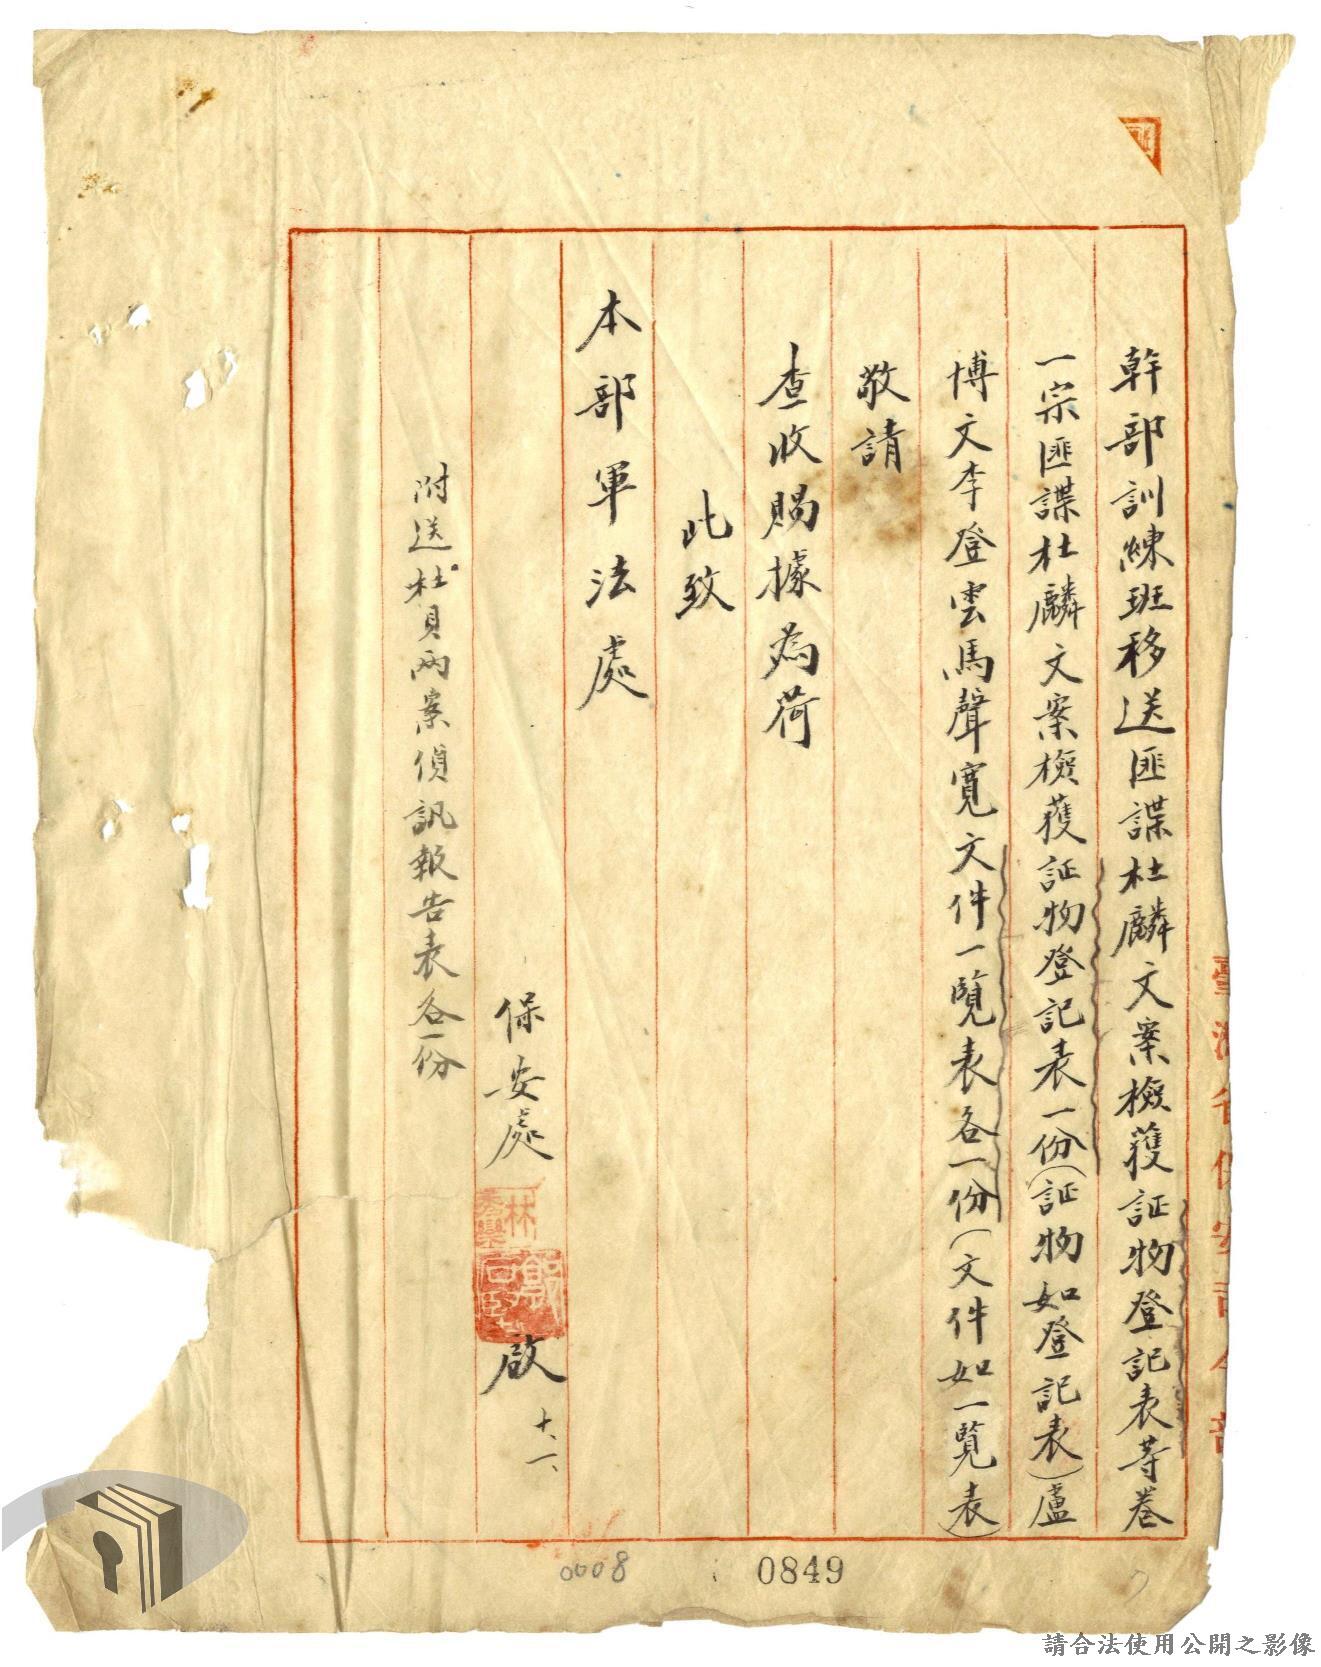 臺灣省保安司令部
幹部訓練班移送匪諜杜麟文案檢獲証物登記表等卷
一宗匪諜杜麟文案檢獲証物登記表一份(証物如登記表)盧
博文李登雲馬聲寬文件一覽表各一份(文件如一覽表)
敬請
查收賜據為荷
此致
本部軍法處
保安處
啟
十、一、
附送杜員兩案偵訊報告表各一份
0008
0849
請合法使用公開之影像